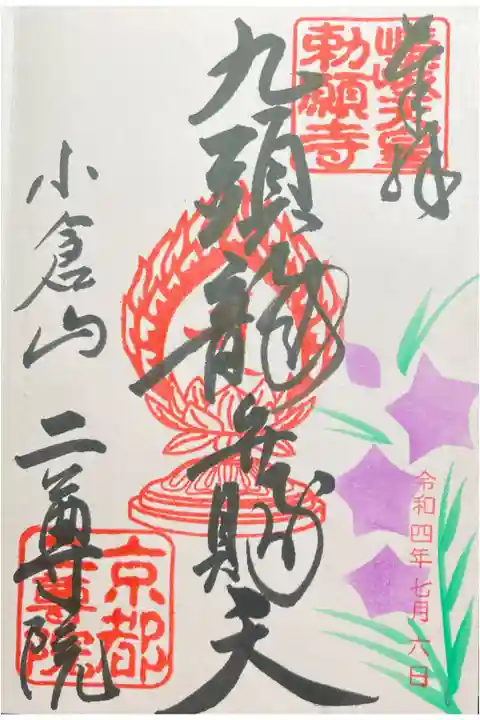 奉拝
嵯峨天皇
勅願寺
九頭龍弁財天
令和四年七月六日
小倉山 二尊院
京都
二尊院